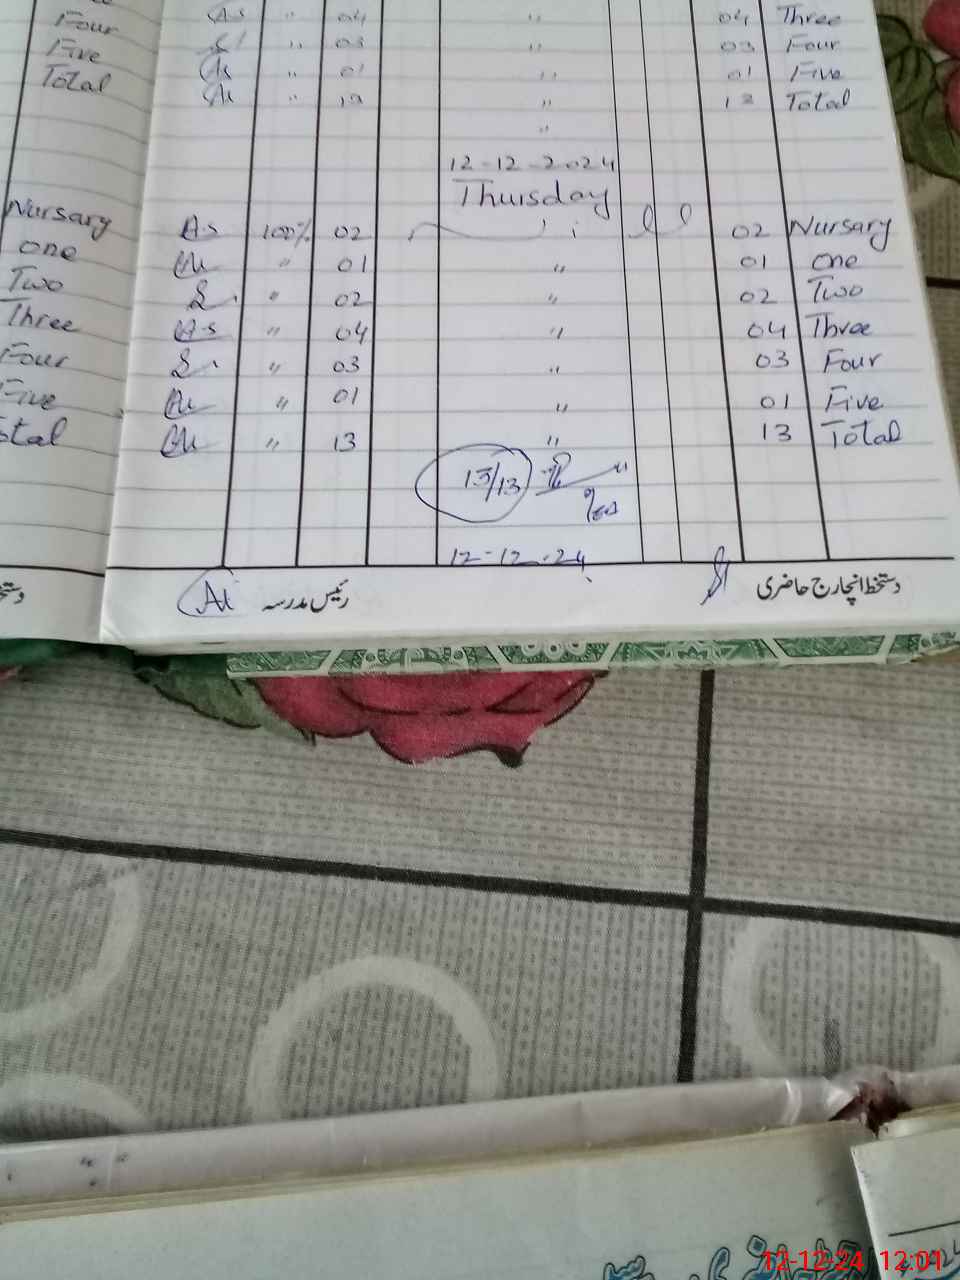 Four As " 04 " 04 Three
Five " 03 " 03 Four
Total " 01 " 01 Five
" 13 " 13 Total
"
12-12-2024
Thursday
Nursary As 100% 02 02 Nursary
one " 01 " 01 one
Two " 02 " 02 Two
Three As " 04 " 04 Three
Four " 03 " 03 Four
Five " 01 " 01 Five
otal " 13 " 13 Total
13/13
Yes
12-12-24
رئیس مدرسہ دستخط انچارج حاضری
12-12-24 12:01